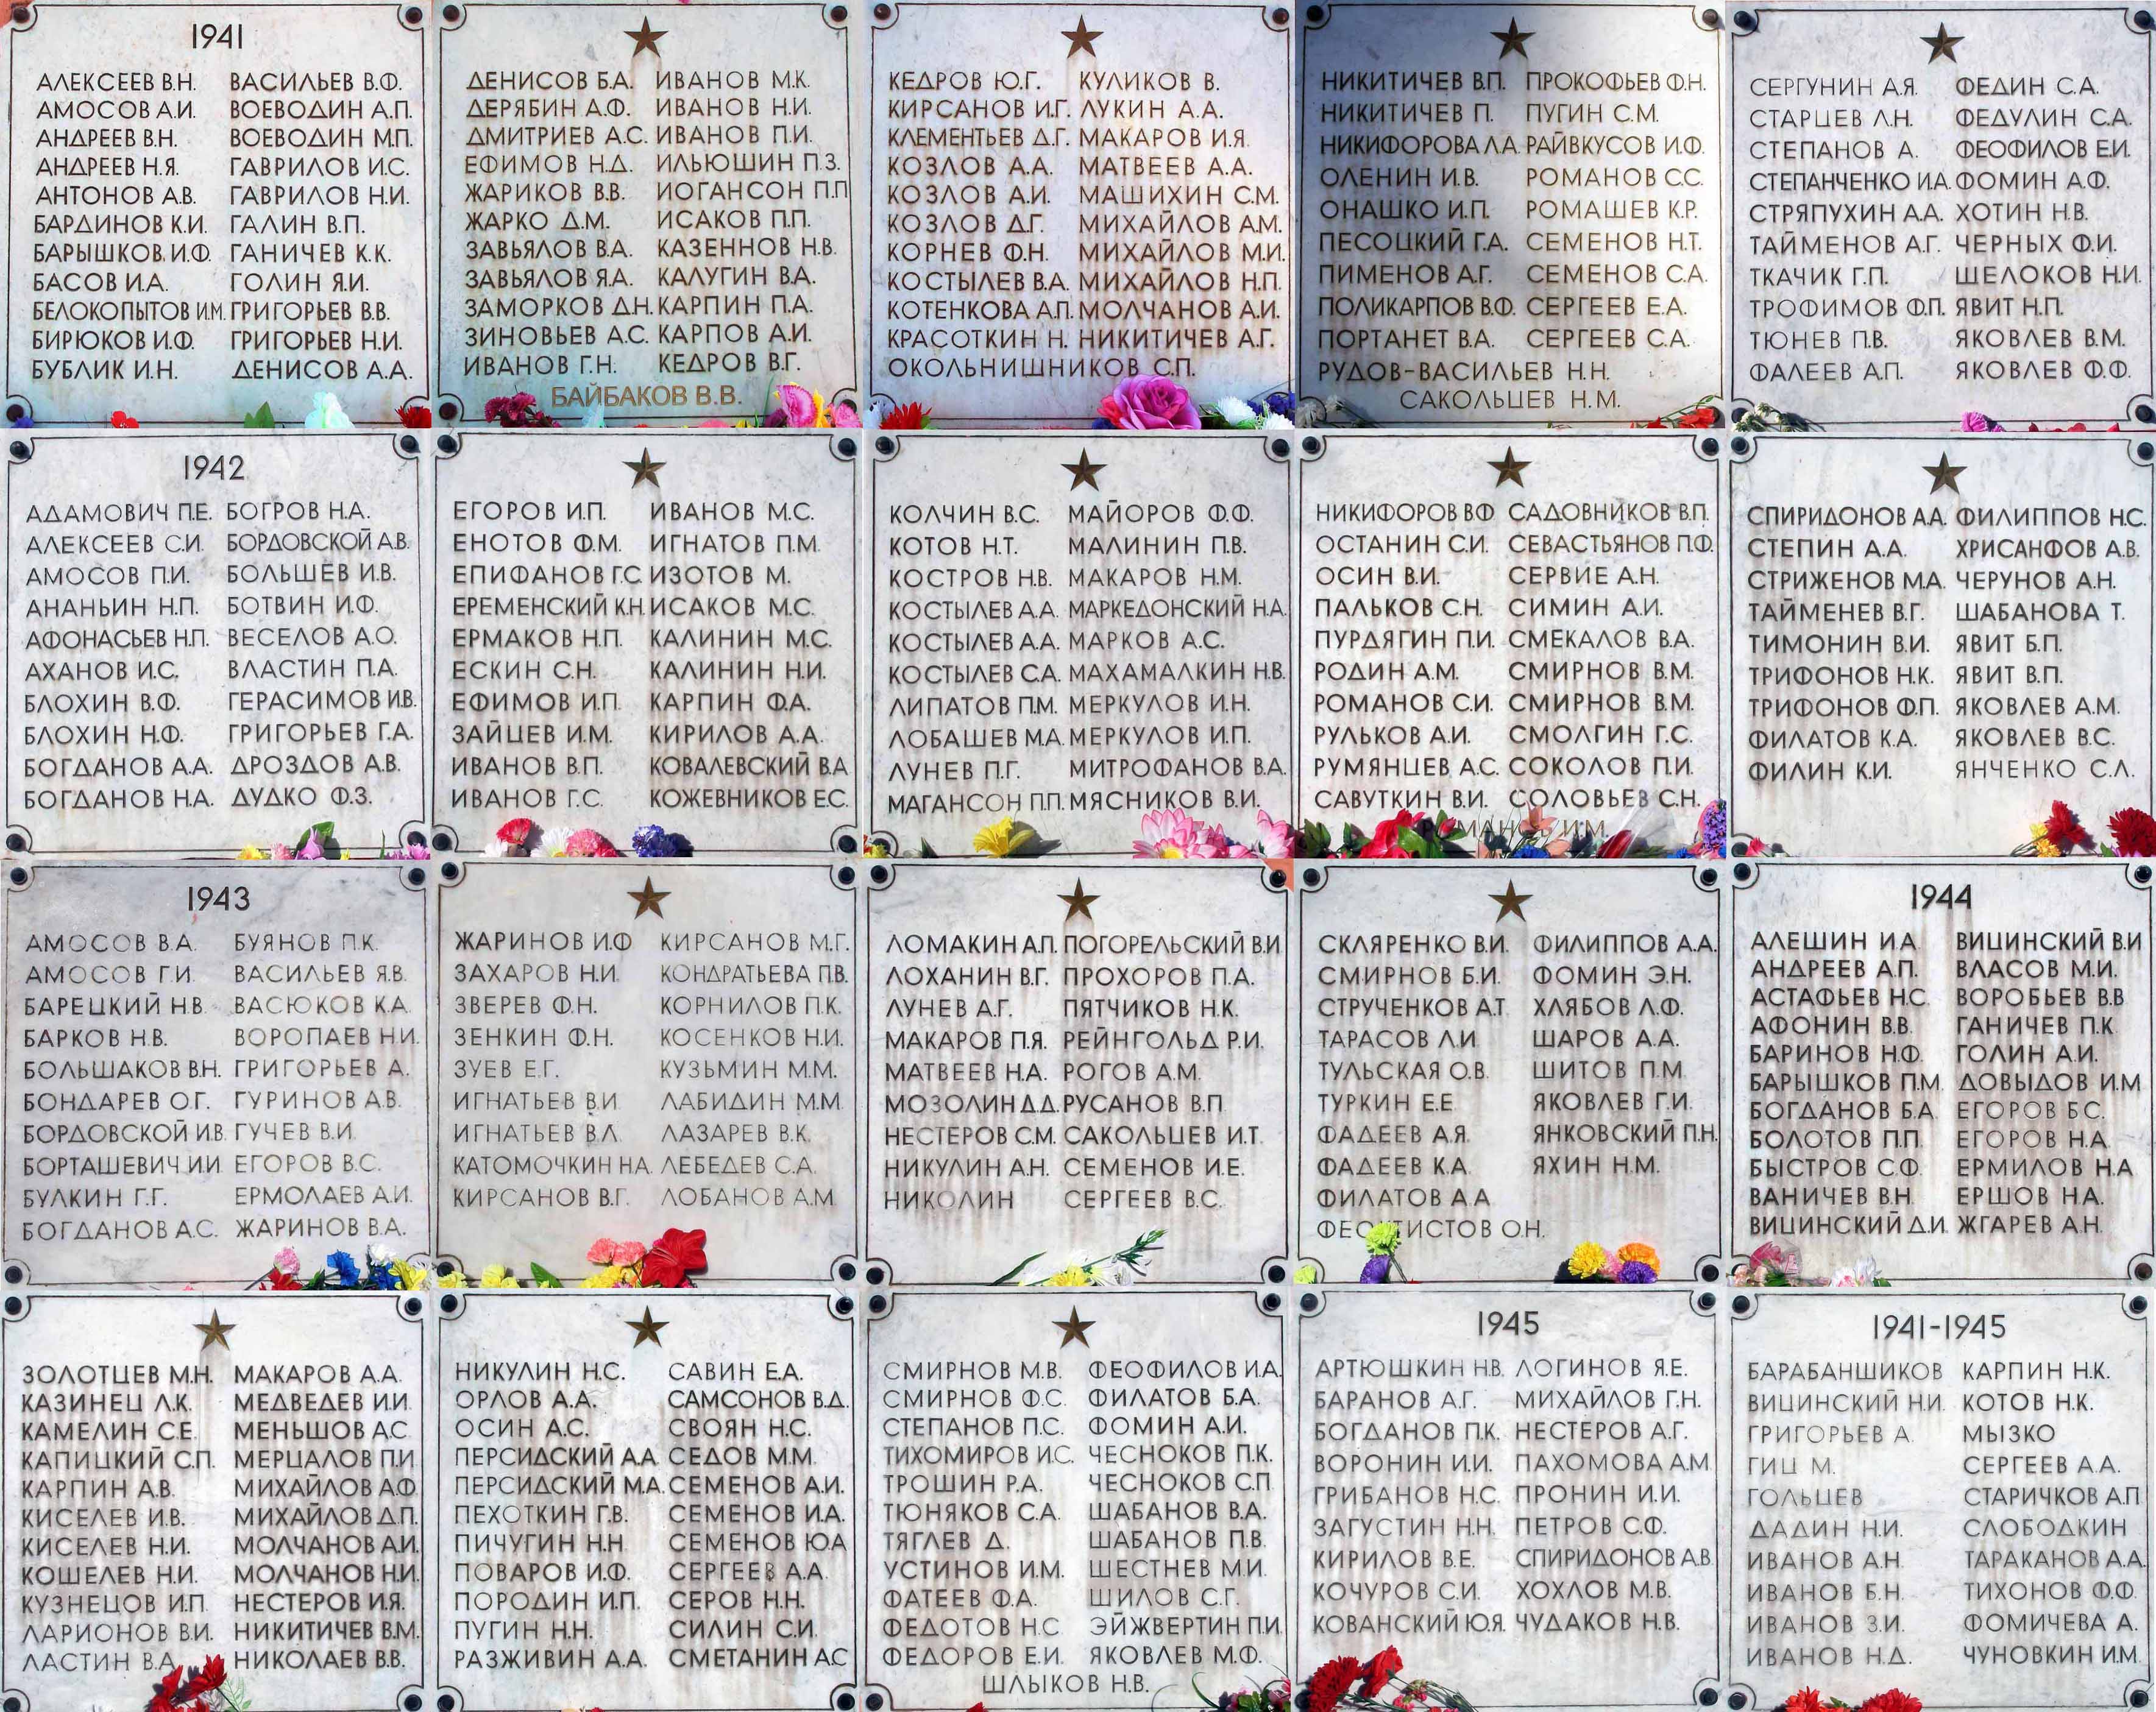 1941
АЛЕКСЕЕВ В.Н. ВАСИЛЬЕВ В.Ф.
АМОСОВ А.И. ВОЕВОДИН А.П.
АНДРЕЕВ В.Н. ВОЕВОДИН М.П.
АНДРЕЕВ Н.Я. ГАВРИЛОВ И.С.
АНТОНОВ А.В. ГАВРИЛОВ Н.И.
БАРДИНОВ К.И. ГАЛИН В.П.
БАРЫШКОВ И.Ф. ГАНИЧЕВ К.К.
БАСОВ И.А. ГОЛИН Я.И.
БЕЛОКОПЫТОВ И.М. ГРИГОРЬЕВ В.В.
БИРЮКОВ И.Ф. ГРИГОРЬЕВ Н.И.
БУБЛИК И.Н. ДЕНИСОВ А.А.
ДЕНИСОВ Б.А. ИВАНОВ М.К.
ДЕРЯБИН А.Ф. ИВАНОВ Н.И.
ДМИТРИЕВ А.С. ИВАНОВ П.И.
ЕФИМОВ Н.Д. ИЛЬЮШИН П.З.
ЖАРИКОВ В.В. ИОГАНСОН П.П
ЖАРКО Д.М. ИСАКОВ П.П.
ЗАВЬЯЛОВ В.А. КАЗЕННОВ Н.В.
ЗАВЬЯЛОВ Я.А. КАЛУГИН В.А.
ЗАМОРКОВ Д.Н. КАРПИН П.А.
ЗИНОВЬЕВ А.С. КАРПОВ А.И.
ИВАНОВ Г.Н. КЕДРОВ В.Г.
БАЙБАКОВ В.В.
КЕДРОВ Ю.Г. КУЛИКОВ В.
КИРСАНОВ И.Г. ЛУКИН А.А.
КЛЕМЕНТЬЕВ Д.Г. МАКАРОВ И.Я.
КОЗЛОВ А.А. МАТВЕЕВ А.А.
КОЗЛОВ А.И. МАШИХИН С.М.
КОЗЛОВ Д.Г. МИХАЙЛОВ А.М.
КОРНЕВ Ф.Н. МИХАЙЛОВ М.И.
КОСТЫЛЕВ В.А. МИХАЙЛОВ Н.П.
КОТЕНКОВА А.П. МОЛЧАНОВ А.И.
КРАСОТКИН Н. НИКИТИЧЕВ А.Г.
ОКОЛЬНИШНИКОВ С.П.
НИКИТИЧЕВ В.П. ПРОКОФЬЕВ Ф.Н.
НИКИТИЧЕВ П. ПУГИН С.М.
НИКИФОРОВА Л.А. РАЙВКУСОВ И.Ф.
ОЛЕНИН И.В. РОМАНОВ С.С.
ОНАШКО И.П. РОМАШЕВ К.Р.
ПЕСОЦКИЙ Г.А. СЕМЕНОВ Н.Т.
ПИМЕНОВ А.Г. СЕМЕНОВ С.А.
ПОЛИКАРПОВ В.Ф. СЕРГЕЕВ Е.А.
ПОРТАНЕТ В.А. СЕРГЕЕВ С.А.
РУДОВ-ВАСИЛЬЕВ Н.Н.
САКОЛЬЦЕВ Н.М.
СЕРГУНИН А.Я. ФЕДИН С.А.
СТАРЦЕВ Л.Н. ФЕДУЛИН С.А.
СТЕПАНОВ А. ФЕОФИЛОВ Е.И.
СТЕПАНЧЕНКО И.А. ФОМИН А.Ф.
СТРЯПУХИН А.А. ХОТИН Н.В.
ТАЙМЕНОВ А.Г. ЧЕРНЫХ Ф.И.
ТКАЧИК Г.П. ШЕЛОКОВ Н.И.
ТРОФИМОВ Ф.П. ЯВИТ Н.П.
ТЮНЕВ П.В. ЯКОВЛЕВ В.М.
ФАЛЕЕВ А.П. ЯКОВЛЕВ Ф.Ф.
1942
АДАМОВИЧ П.Е. БОГРОВ Н.А.
АЛЕКСЕЕВ С.И. БОРДОВСКОЙ А.В.
АМОСОВ П.И. БОЛЬШЕВ И.В.
АНАНЬИН Н.П. БОТВИН И.Ф.
АФОНАСЬЕВ Н.П. ВЕСЕЛОВ А.О.
АХАНОВ И.С. ВЛАСТИН П.А.
БЛОХИН В.Ф. ГЕРАСИМОВ И.В.
БЛОХИН Н.Ф. ГРИГОРЬЕВ Г.А.
БОГДАНОВ А.А. ДРОЗДОВ А.В.
БОГДАНОВ Н.А. ДУДКО Ф.З.
ЕГОРОВ И.П. ИВАНОВ М.С.
ЕНОТОВ Ф.М. ИГНАТОВ П.М.
ЕПИФАНОВ Г.С. ИЗОТОВ М.
ЕРЕМЕНСКИЙ К.Н. ИСАКОВ М.С.
ЕРМАКОВ Н.П. КАЛИНИН М.С.
ЕСКИН С.Н. КАЛИНИН Н.И.
ЕФИМОВ И.П. КАРПИН Ф.А.
ЗАЙЦЕВ И.М. КИРИЛОВ А.А.
ИВАНОВ В.П. КОВАЛЕВСКИЙ В.А
ИВАНОВ Г.С. КОЖЕВНИКОВ Е.С.
КОЛЧИН В.С. МАЙОРОВ Ф.Ф.
КОТОВ Н.Т. МАЛИНИН П.В.
КОСТРОВ Н.В. МАКАРОВ Н.М.
КОСТЫЛЕВ А.А. МАРКЕДОНСКИЙ Н.А.
КОСТЫЛЕВ А.А. МАРКОВ А.С.
КОСТЫЛЕВ С.А. МАХАМАЛКИН Н.В.
ЛИПАТОВ П.М. МЕРКУЛОВ И.Н.
ЛОБАШЕВ М.А. МЕРКУЛОВ И.П.
ЛУНЕВ П.Г. МИТРОФАНОВ В.А.
МАГАНСОН П.П. МЯСНИКОВ В.И.
НИКИФОРОВ В.Ф САДОВНИКОВ В.П.
ОСТАНИН С.И. СЕВАСТЬЯНОВ П.Ф.
ОСИН В.И. СЕРВИЕ А.Н.
ПАЛЬКОВ С.Н. СИМИН А.И.
ПУРДЯГИН П.И. СМЕКАЛОВ В.А.
РОДИН А.М. СМИРНОВ В.М.
РОМАНОВ С.И. СМИРНОВ В.М.
РУЛЬКОВ А.И. СМОЛГИН Г.С.
РУМЯНЦЕВ А.С. СОКОЛОВ П.И.
САВУТКИН В.И. СОЛОВЬЕВ С.Н.
И.М.
СПИРИДОНОВ А.А. ФИЛИППОВ Н.С.
СТЕПИН А.А. ХРИСАНФОВ А.В.
СТРИЖЕНОВ М.А. ЧЕРУНОВ А.Н.
ТАЙМЕНЕВ В.Г. ШАБАНОВА Т.
ТИМОНИН В.И. ЯВИТ Б.П.
ТРИФОНОВ Н.К. ЯВИТ В.П.
ТРИФОНОВ Ф.П. ЯКОВЛЕВ А.М.
ФИЛАТОВ К.А. ЯКОВЛЕВ В.С.
ФИЛИН К.И. ЯНЧЕНКО С.Л.
1943
АМОСОВ В.А. БУЯНОВ П.К.
АМОСОВ Г.И. ВАСИЛЬЕВ Я.В.
БАРЕЦКИЙ Н.В. ВАСЮКОВ К.А.
БАРКОВ Н.В. ВОРОПАЕВ Н.И.
БОЛЬШАКОВ В.Н. ГРИГОРЬЕВ А.
БОНДАРЕВ О.Г. ГУРИНОВ А.В.
БОРДОВСКОЙ И.В. ГУЧЕВ В.И.
БОРТАШЕВИЧ И.И. ЕГОРОВ В.С.
БУЛКИН Г.Г. ЕРМОЛАЕВ А.И.
БОГДАНОВ А.С. ЖАРИНОВ В.А.
ЖАРИНОВ И.Ф КИРСАНОВ М.Г.
ЗАХАРОВ Н.И. КОНДРАТЬЕВА П.В.
ЗВЕРЕВ Ф.Н. КОРНИЛОВ П.К.
ЗЕНКИН Ф.Н. КОСЕНКОВ Н.И.
ЗУЕВ Е.Г. КУЗЬМИН М.М.
ИГНАТЬЕВ В.И. ЛАБИДИН М.М.
ИГНАТЬЕВ В.Л. ЛАЗАРЕВ В.К.
КАТОМОЧКИН Н.А. ЛЕБЕДЕВ С.А.
КИРСАНОВ В.Г. ЛОБАНОВ А.М
ЛОМАКИН А.П. ПОГОРЕЛЬСКИЙ В.И
ЛОХАНИН В.Г. ПРОХОРОВ П.А.
ЛУНЕВ А.Г. ПЯТЧИКОВ Н.К.
МАКАРОВ П.Я. РЕЙНГОЛЬД Р.И.
МАТВЕЕВ Н.А. РОГОВ А.М.
МОЗОЛИН Д.Д. РУСАНОВ В.П
НЕСТЕРОВ С.М. САКОЛЬЦЕВ И.Т.
НИКУЛИН А.Н. СЕМЕНОВ И.Е.
НИКОЛИН СЕРГЕЕВ В.С.
СКЛЯРЕНКО В.И. ФИЛИППОВ А.А.
СМИРНОВ Б.И. ФОМИН Э.Н.
СТРУЧЕНКОВ А.Т. ХЛЯБОВ Л.Ф.
ТАРАСОВ Л.И ШАРОВ А.А.
ТУЛЬСКАЯ О.В. ШИТОВ П.М.
ТУРКИН Е.Е. ЯКОВЛЕВ Г.И.
ФАДЕЕВ А.Я. ЯНКОВСКИЙ П.Н.
ФАДЕЕВ К.А. ЯХИН Н.М.
ФИЛАТОВ А.А
О.Н.
1944
АЛЕШИН И.А. ВИЦИНСКИЙ В.И
АНДРЕЕВ А.П. ВЛАСОВ М.И.
АСТАФЬЕВ Н.С. ВОРОБЬЕВ В.В
АФОНИН В.В. ГАНИЧЕВ П.К
БАРИНОВ Н.Ф. ГОЛИН А.И.
БАРЫШКОВ П.М. ДОВЫДОВ И.М
БОГДАНОВ Б.А. ЕГОРОВ Б.С.
БОЛОТОВ П.П. ЕГОРОВ Н.А.
БЫСТРОВ С.Ф. ЕРМИЛОВ Н.А
ВАНИЧЕВ В.Н. ЕРШОВ Н.А.
ВИЦИНСКИЙ Д.И. ЖГАРЕВ А.Н.
ЗОЛОТЦЕВ М.Н. МАКАРОВ А.А.
КАЗИНЕЦ Л.К. МЕДВЕДЕВ И.И
КАМЕЛИН С.Е. МЕНЬШОВ А.С
КАПИЦКИЙ С.П. МЕРЦАЛОВ П.И
КАРПИН А.В. МИХАЙЛОВ А.Ф
КИСЕЛЕВ И.В. МИХАЙЛОВ Д.П.
КИСЕЛЕВ Н.И. МОЛЧАНОВ А.И.
КОШЕЛЕВ Н.И. МОЛЧАНОВ Н.И.
КУЗНЕЦОВ И.П. НЕСТЕРОВ И.Я.
ЛАРИОНОВ В.И. НИКИТИЧЕВ В.М.
ЛАСТИН В.А. НИКОЛАЕВ В.В.
НИКУЛИН Н.С. САВИН Е.А.
ОРЛОВ А.А. САМСОНОВ В.Д.
ОСИН А.С. СВОЯН Н.С.
ПЕРСИДСКИЙ А.А. СЕДОВ М.М.
ПЕРСИДСКИЙ М.А. СЕМЕНОВ А.И.
ПЕХОТКИН Г.В. СЕМЕНОВ И.А.
ПИЧУГИН Н.Н. СЕМЕНОВ Ю.А
ПОВАРОВ И.Ф. СЕРГЕЕВ А.А.
ПОРОДИН И.П. СЕРОВ Н.Н.
ПУГИН Н.Н. СИЛИН С.И.
РАЗЖИВИН А.А. СМЕТАНИН А.С
СМИРНОВ М.В. ФЕОФИЛОВ И.А.
СМИРНОВ Ф.С. ФИЛАТОВ Б.А.
СТЕПАНОВ П.С. ФОМИН А.И.
ТИХОМИРОВ И.С. ЧЕСНОКОВ П.К.
ТРОШИН Р.А. ЧЕСНОКОВ С.П
ТЮНЯКОВ С.А. ШАБАНОВ В.А.
ТЯГЛЕВ Д. ШАБАНОВ П.В.
УСТИНОВ И.М. ШЕСТНЕВ М.И.
ФАТЕЕВ Ф.А. ШИЛОВ С.Г.
ФЕДОТОВ Н.С ЭЙЖВЕРТИН П.И.
ФЕДОРОВ Е.И. ЯКОВЛЕВ М.Ф.
ШЛЫКОВ Н.В.
1945
АРТЮШКИН Н.В. ЛОГИНОВ Я.Е.
БАРАНОВ А.Г. МИХАЙЛОВ Г.Н.
БОГДАНОВ П.К. НЕСТЕРОВ А.Г.
ВОРОНИН И.И. ПАХОМОВА А.М.
ГРИБАНОВ Н.С. ПРОНИН И.И.
ЗАГУСТИН Н.Н. ПЕТРОВ С.Ф.
КИРИЛОВ В.Е. СПИРИДОНОВ А.В.
КОЧУРОВ С.И. ХОХЛОВ М.В.
КОВАНСКИЙ Ю.Я. ЧУДАКОВ Н.В.
1941-1945
БАРАБАНЩИКОВ КАРПИН Н.К.
ВИЦИНСКИЙ Н.И. КОТОВ Н.К.
ГРИГОРЬЕВ А. МЫЗКО
ГИЦ М. СЕРГЕЕВ А.А.
ГОЛЬЦЕВ СТАРИЧКОВ А.П
ДАДИН Н.И. СЛОБОДКИН
ИВАНОВ А.Н. ТАРАКАНОВ А.А.
ИВАНОВ Б.Н. ТИХОНОВ Ф.Ф.
ИВАНОВ З.И. ФОМИЧЕВА А.
ИВАНОВ Н.Д. ЧУНОВКИН И.М.